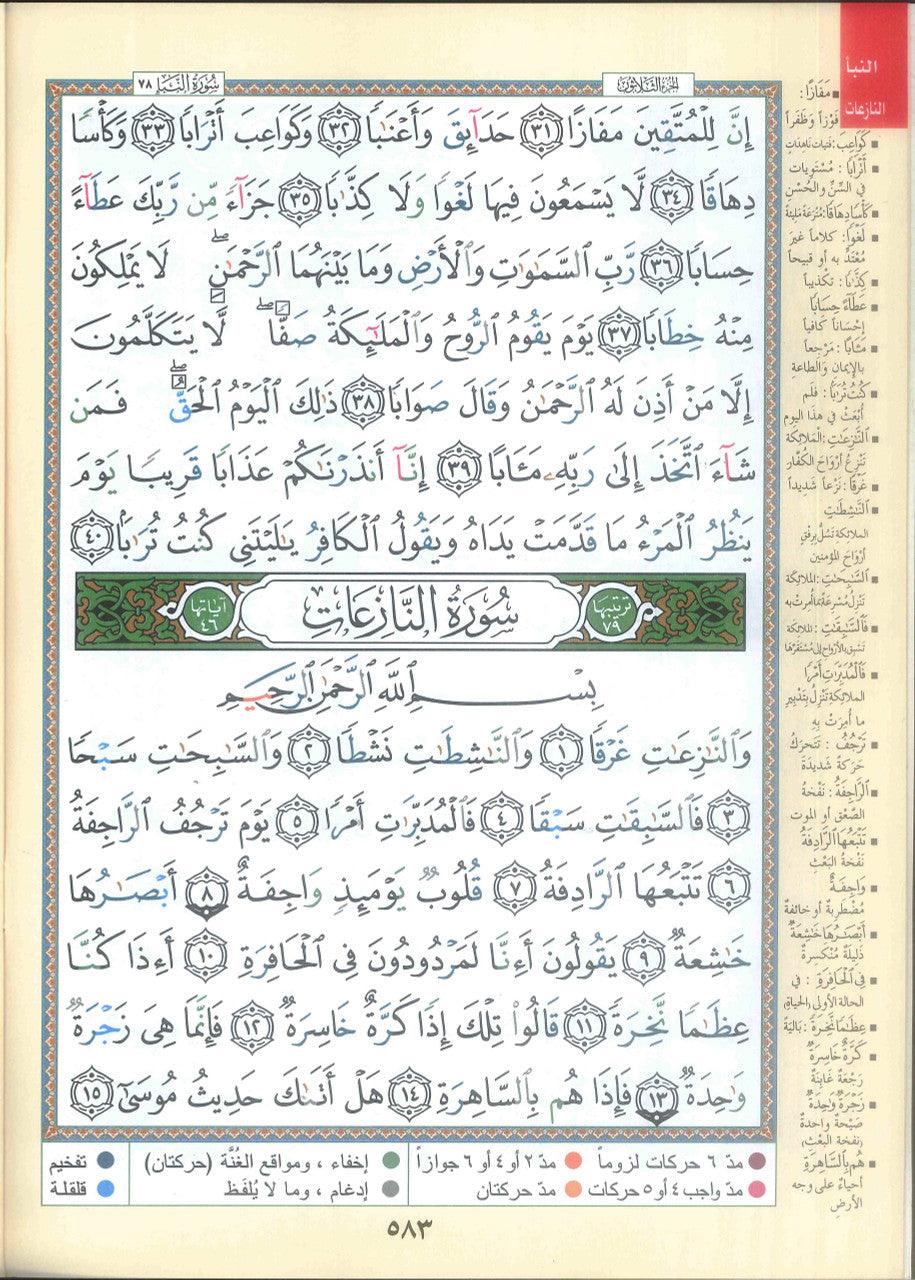 النبأ
النازعات
سُورَةُ النَّبَإِ ٧٨
الجزء الثلاثون
إِنَّ لِلْمُتَّقِينَ مَفَازًا ٣١ حَدَآئِقَ وَأَعْنَٰبًا ٣٢ وَكَوَاعِبَ أَتْرَابًا ٣٣ وَكَأْسًا
دِهَاقًا ٣٤ لَّا يَسْمَعُونَ فِيهَا لَغْوًا وَلَا كِذَّٰبًا ٣٥ جَزَآءً مِّن رَّبِّكَ عَطَآءً
حِسَابًا ٣٦ رَّبِّ السَّمَٰوَٰتِ وَالْأَرْضِ وَمَا بَيْنَهُمَا الرَّحْمَٰنِ ۖ لَا يَمْلِكُونَ
مِنْهُ خِطَابًا ٣٧ يَوْمَ يَقُومُ الرُّوحُ وَالْمَلَٰٓئِكَةُ صَفًّا ۖ لَّا يَتَكَلَّمُونَ
إِلَّا مَنْ أَذِنَ لَهُ الرَّحْمَٰنُ وَقَالَ صَوَابًا ٣٨ ذَٰلِكَ الْيَوْمُ الْحَقُّ ۖ فَمَن
شَآءَ اتَّخَذَ إِلَىٰ رَبِّهِۦ مَـَٔابًا ٣٩ إِنَّآ أَنذَرْنَٰكُمْ عَذَابًا قَرِيبًا يَوْمَ
يَنظُرُ الْمَرْءُ مَا قَدَّمَتْ يَدَاهُ وَيَقُولُ الْكَافِرُ يَٰلَيْتَنِى كُنتُ تُرَٰبًۢا ٤٠
ترتيبها ٧٩
سُورَةُ النَّازِعَاتِ
آياتها ٤٦
بِسْمِ اللَّهِ الرَّحْمَٰنِ الرَّحِيمِ
وَالنَّٰزِعَٰتِ غَرْقًا ١ وَالنَّٰشِطَٰتِ نَشْطًا ٢ وَالسَّٰبِحَٰتِ سَبْحًا
٣ فَالسَّٰبِقَٰتِ سَبْقًا ٤ فَالْمُدَبِّرَٰتِ أَمْرًا ٥ يَوْمَ تَرْجُفُ الرَّاجِفَةُ
٦ تَتْبَعُهَا الرَّادِفَةُ ٧ قُلُوبٌ يَوْمَئِذٍ وَاجِفَةٌ ٨ أَبْصَٰرُهَا
خَٰشِعَةٌ ٩ يَقُولُونَ أَءِنَّا لَمَرْدُودُونَ فِى الْحَافِرَةِ ١٠ أَءِذَا كُنَّا
عِظَٰمًا نَّخِرَةً ١١ قَالُوا تِلْكَ إِذًا كَرَّةٌ خَاسِرَةٌ ١٢ فَإِنَّمَا هِىَ زَجْرَةٌ
وَٰحِدَةٌ ١٣ فَإِذَا هُم بِالسَّاهِرَةِ ١٤ هَلْ أَتَىٰكَ حَدِيثُ مُوسَىٰٓ ١٥
مَفَازًا:
فَوْزاً وَظَفَراً
كَوَاعِبَ: فتيات ناهدات
أَتْرَابًا: مُسْتَوِيات
في السِّنِّ والحُسْنِ
كَأْسًا دِهَاقًا: مُتْرَعَة مليئة
لَغْوًا: كلاماً غيرَ
مُعْتَدٍّ به أو قبيحاً
كِذَّٰبًا: تكذيباً
عَطَآءً حِسَابًا
إحساناً كافياً
مَـَٔابًا: مَرْجعاً
بالإيمان والطاعة
كُنتُ تُرَٰبًا: فلم
أُبْعَثْ في هذا اليوم
النَّٰزِعَٰتِ: الملائكة
تنزِعُ أرواح الكفّار
غَرْقًا: نَزْعاً شديداً
النَّٰشِطَٰتِ
الملائكة تسُلُّ برفقٍ
أرواحَ المؤمنين
السَّٰبِحَٰتِ: الملائكة
تنزلُ مُسْرعة بما أُمِرت به
فَالسَّٰبِقَٰتِ: الملائكة
تسبق بالأرواح إلى مُسْتقرّها
فَالْمُدَبِّرَٰتِ أَمْرًا
الملائكة تنزلُ بتدبير
ما أُمِرَتْ بِهِ
تَرْجُفُ: تتحرّكُ
حركةً شديدةً
الرَّاجِفَةُ: نفخةُ
الصَّعْق أو الموت
تَتْبَعُهَا الرَّادِفَةُ
نفخةُ البَعْث
وَاجِفَةٌ
مُضْطربةٌ أو خائفةٌ
أَبْصَٰرُهَا خَٰشِعَةٌ
ذليلةٌ مُنْكسرةٌ
فِى الْحَافِرَةِ: في
الحالة الأولى (الحياة)
عِظَٰمًا نَّخِرَةً: بَاليةً
كَرَّةٌ خَاسِرَةٌ
رجعةٌ غابنةٌ
زَجْرَةٌ وَٰحِدَةٌ
صيحةٌ واحدةٌ
(نفخة البعث)
هُم بِالسَّاهِرَةِ
أحياءٌ على وجه
الأرض
مدّ ٦ حركات لزوماً
مدّ ٢ أو ٤ أو ٦ جوازاً
إخفاء ، ومواقع الغُنَّة (حركتان)
تفخيم
مدّ واجب ٤ أو ٥ حركات
مدّ حركتان
إدغام ، وما لا يُلفَظ
قلقلة
٥٨٣